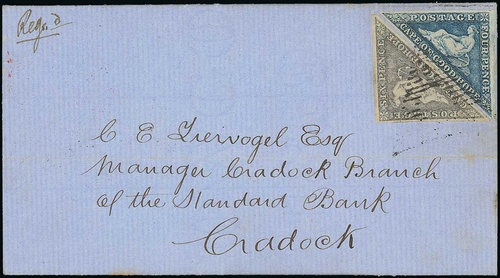 Regd
POSTAGE
CAPE OF GOOD HOPE
FOURPENCE
SIX PENCE
CAPE OF GOOD HOPE
POSTAGE
C E Treivogel Esq
Manager Cradock Branch
of the Standard Bank
Cradock